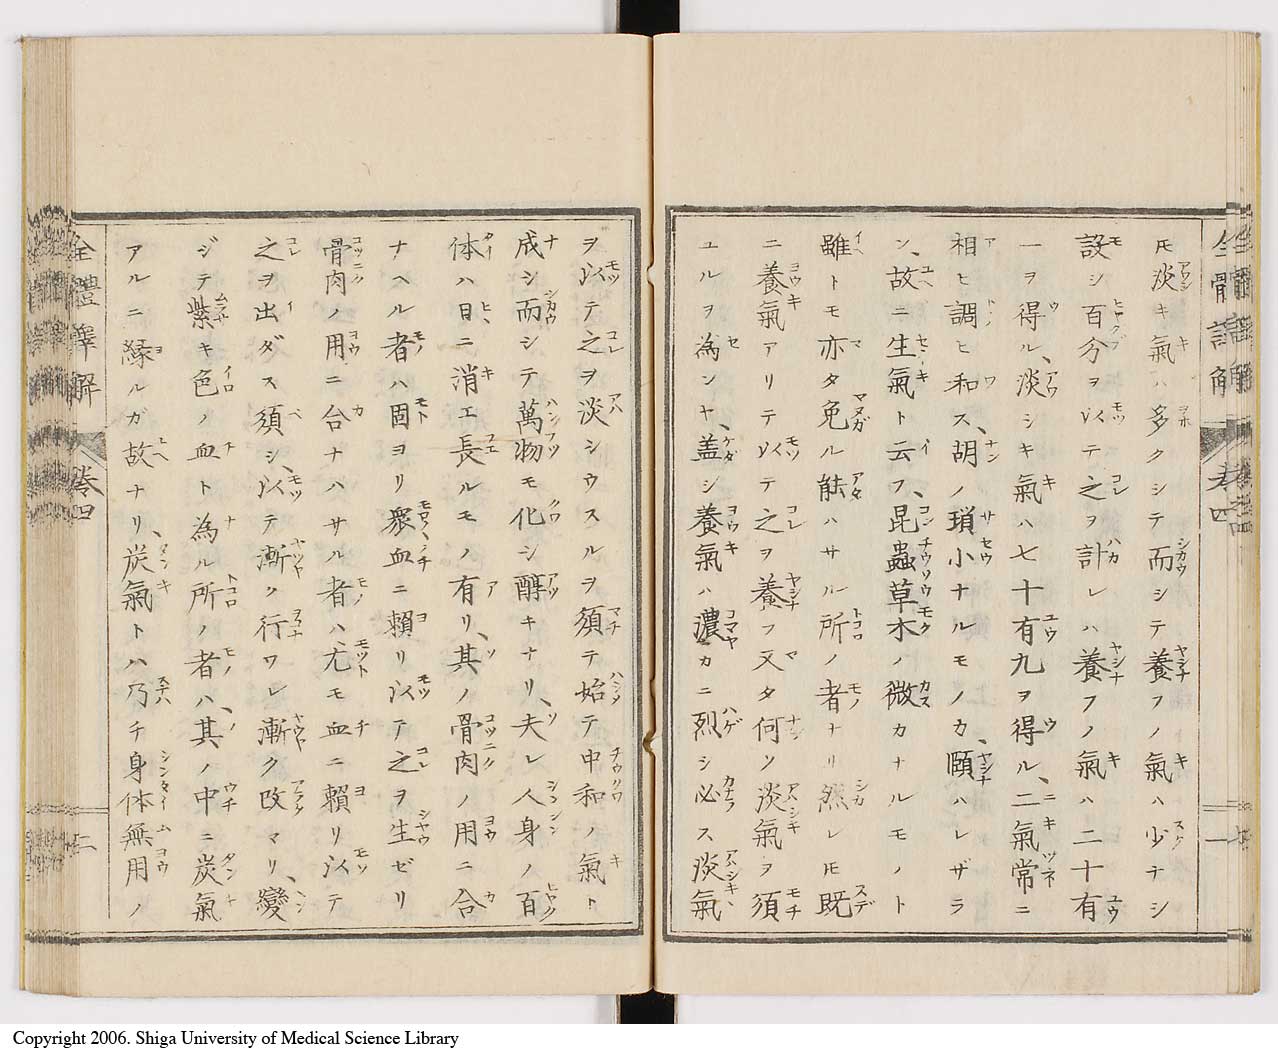 全體譯解 卷四 一
𪜈淡キ氣ハ多クシテ而シテ養フノ氣ハ少ナシ
設シ百分ヲ以テ之ヲ計レハ養フノ氣ハ二十有
一ヲ得ル、淡シキ氣ハ七十有九ヲ得ル、二氣常ニ
相ヒ調ヒ和ス、胡ノ瑣小ナルモノカ、頤ハレザラ
ン、故ニ生氣ト云フ、昆蟲草木ノ微カナルモノト
雖トモ亦タ免ル能ハサル所ノ者ナリ然レ𪜈既
ニ養氣アリテ以テ之ヲ養フ又タ何ソ淡氣ヲ須
ユルヲ為ンヤ、盖シ養氣ハ濃カニ烈シ必ス淡氣
ヲ以テ之ヲ淡シウスルヲ須テ始テ中和ノ氣ト
成シ而シテ萬物モ化シ醇キナリ、夫レ人身ノ百
体ハ日ニ消エ長ルモノ有リ、其ノ骨肉ノ用ニ合
ナヘル者ハ固ヨリ衆血ニ賴リ以テ之ヲ生ゼリ
骨肉ノ用ニ合ナハサル者ハ尤モ血ニ賴リ以テ
之ヲ出ダス須シ、以テ漸ク行ワレ漸ク改マリ、變
ジテ紫キ色ノ血ト為ル所ノ者ハ、其ノ中ニ炭氣
アルニ縁ルガ故ナリ、炭氣トハ乃チ身体無用ノ
全體譯解 卷四 二
Copyright 2006. Shiga University of Medical Science Library